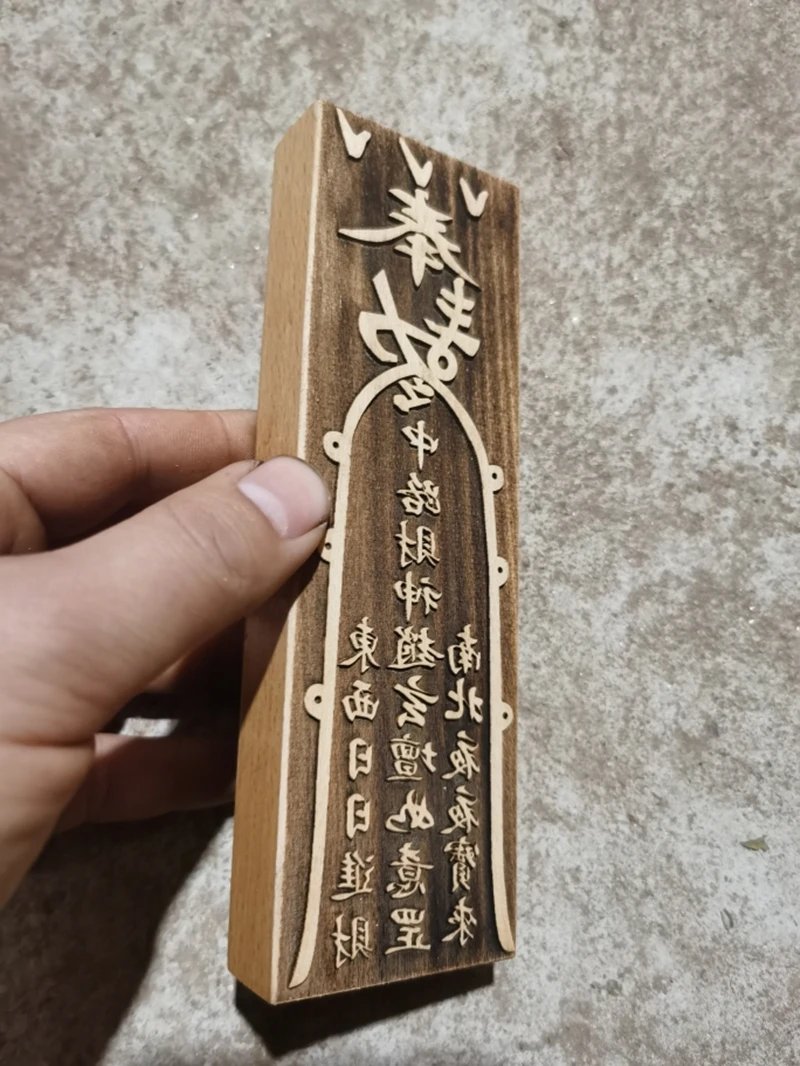 奉
中路財神趙玄壇如意罡
東西日日進財
南北夜夜寶來